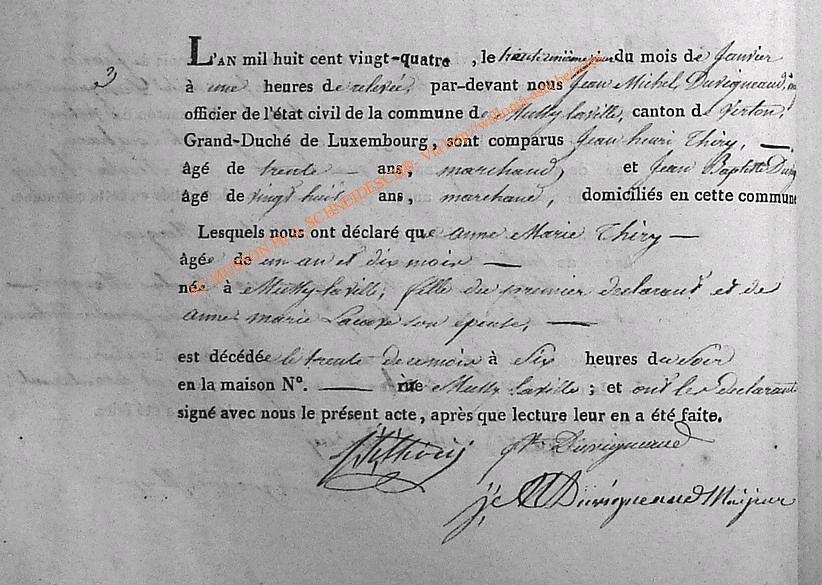 3
L'AN mil huit cent vingt-quatre, le trente unième jour du mois de Janvier
à une heures de relevée, par-devant nous Jean Michel Duvigneaud,
officier de l'état civil de la commune de Mussy la ville, canton de Virton,
Grand-Duché de Luxembourg, sont comparus Jean henri Thiry, —
âgé de trente — ans, marchand, et Jean Baptiste Duvig
âgé de vingt huit ans, marchand, domiciliés en cette commune
Lesquels nous ont déclaré que anne Marie Thiry —
âgée de un an et dix mois —
née à Mussy la ville, fille du premier declarant et de
anne marie son épouse, —
est décédée le trente de ce mois à Six heures du Soir
en la maison N°. — rue Mussy la ville ; et ont les declarant
signé avec nous le présent acte, après que lecture leur en a été faite.
Duvigneaud
Duvigneaud
MUSSON SCHNEIDESCH - Via http://wallonia-asbl.be